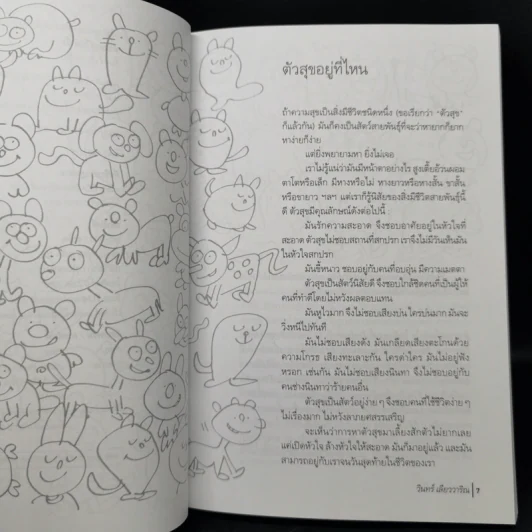 ตัวสุขอยู่ที่ไหน
ถ้าความสุขเป็นสิ่งมีชีวิตชนิดหนึ่ง (ขอเรียกว่า “ตัวสุข”
ก็แล้วกัน) มันก็คงเป็นสัตว์สายพันธุ์ที่จะว่าหายากก็ยาก
หาง่ายก็ง่าย
แต่ยิ่งพยายามหา ยิ่งไม่เจอ
เราไม่รู้แน่ว่ามันมีหน้าตาอย่างไร สูงเตี้ยอ้วนผอม
ตาโตหรือเล็ก มีหางหรือไม่ หางยาวหรือหางสั้น ขาสั้น
หรือขายาว ฯลฯ แต่เราก็รู้นิสัยของสิ่งมีชีวิตสายพันธุ์นี้
ดี ตัวสุขมีคุณลักษณ์ดังต่อไปนี้
มันรักความสะอาด จึงชอบอาศัยอยู่ในหัวใจที่
สะอาด ตัวสุขไม่ชอบสถานที่สกปรก เราจึงไม่มีวันเห็นมัน
ในหัวใจสกปรก
มันขี้หนาว ชอบอยู่กับคนที่อบอุ่น มีความเมตตา
ตัวสุขเป็นสัตว์นิสัยดี จึงชอบใกล้ชิดคนที่เป็นผู้ให้
คนที่ทำดีโดยไม่หวังผลตอบแทน
มันหูไวมาก จึงไม่ชอบเสียงบ่น ใครบ่นมาก มันจะ
วิ่งหนีไปทันที
มันไม่ชอบเสียงดัง มันเกลียดเสียงตะโกนด้วย
ความโกรธ เสียงทะเลาะกัน ใครด่าใคร มันไม่อยู่ฟัง
หรอก เช่นกัน มันไม่ชอบเสียงนินทา จึงไม่ชอบอยู่กับ
คนช่างนินทาว่าร้ายคนอื่น
ตัวสุขเป็นสัตว์อยู่ง่าย ๆ จึงชอบคนที่ใช้ชีวิตง่าย ๆ
ไม่เรื่องมาก ไม่หวังลาภยศสรรเสริญ
จะเห็นว่าการหาตัวสุขมาเลี้ยงสักตัวไม่ยากเลย
แค่เปิดหัวใจ ล้างหัวใจให้สะอาด มันก็มาอยู่แล้ว และมัน
สามารถอยู่กับเราจนวันสุดท้ายในชีวิตของเรา
วินทร์ เลียววาริณ | 7